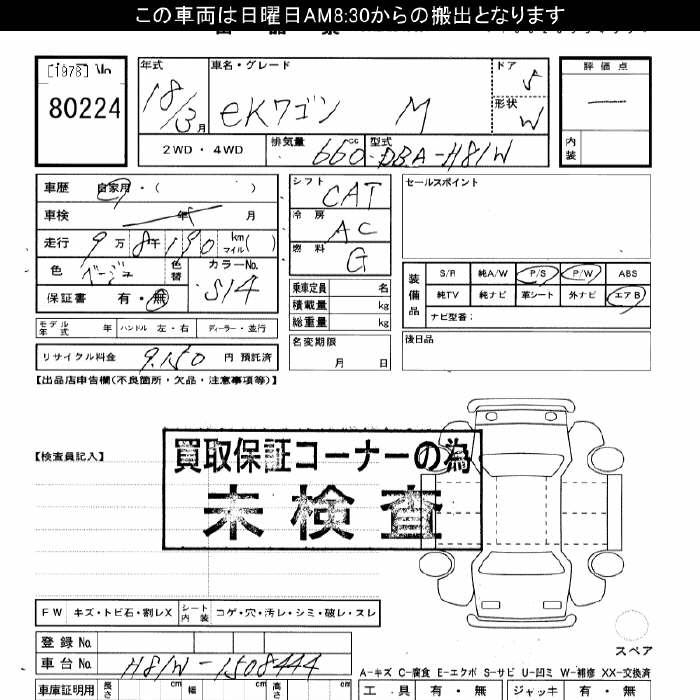 この車両は日曜日AM8:30からの搬出となります
[1978]
80224
年式 18/3月
車名・グレード eKワゴン M
ドア 5
形状 W
評価点 —
内装
2WD・4WD
排気量 660cc
型式 DBA-H81W
車歴 自家用・( )
車検 年 月
走行 9万8千190 km マイル( )
色 ベージュ 色替 カラーNo. S14
保証書 有・無
シフト CAT
冷房 AC
燃料 G
乗車定員 名
積載量 kg
総重量 kg
セールスポイント
装備品
S/R 純A/W P/S P/W ABS
純TV 純ナビ 革シート 外ナビ エアB
ナビ型番:
モデル年式 年 ハンドル 左・右 ディーラー・並行
リサイクル料金 9,150 円 預託済
名変期限 月 日
後日品
【出品店申告欄(不良箇所・欠品・注意事項等)】
【検査員記入】
買取保証コーナーの為
未検査
FW キズ・トビ石・割レX シート内装 コゲ・穴・汚レ・シミ・破レ・スレ
スペア
登録No
車台No H81W-1508444
A-キズ C-腐食 E-エクボ S-サビ U-凹ミ W-補修 XX-交換済
車庫証明用 長さ cm 幅 cm 高さ cm
工具 有・無 ジャッキ 有・無